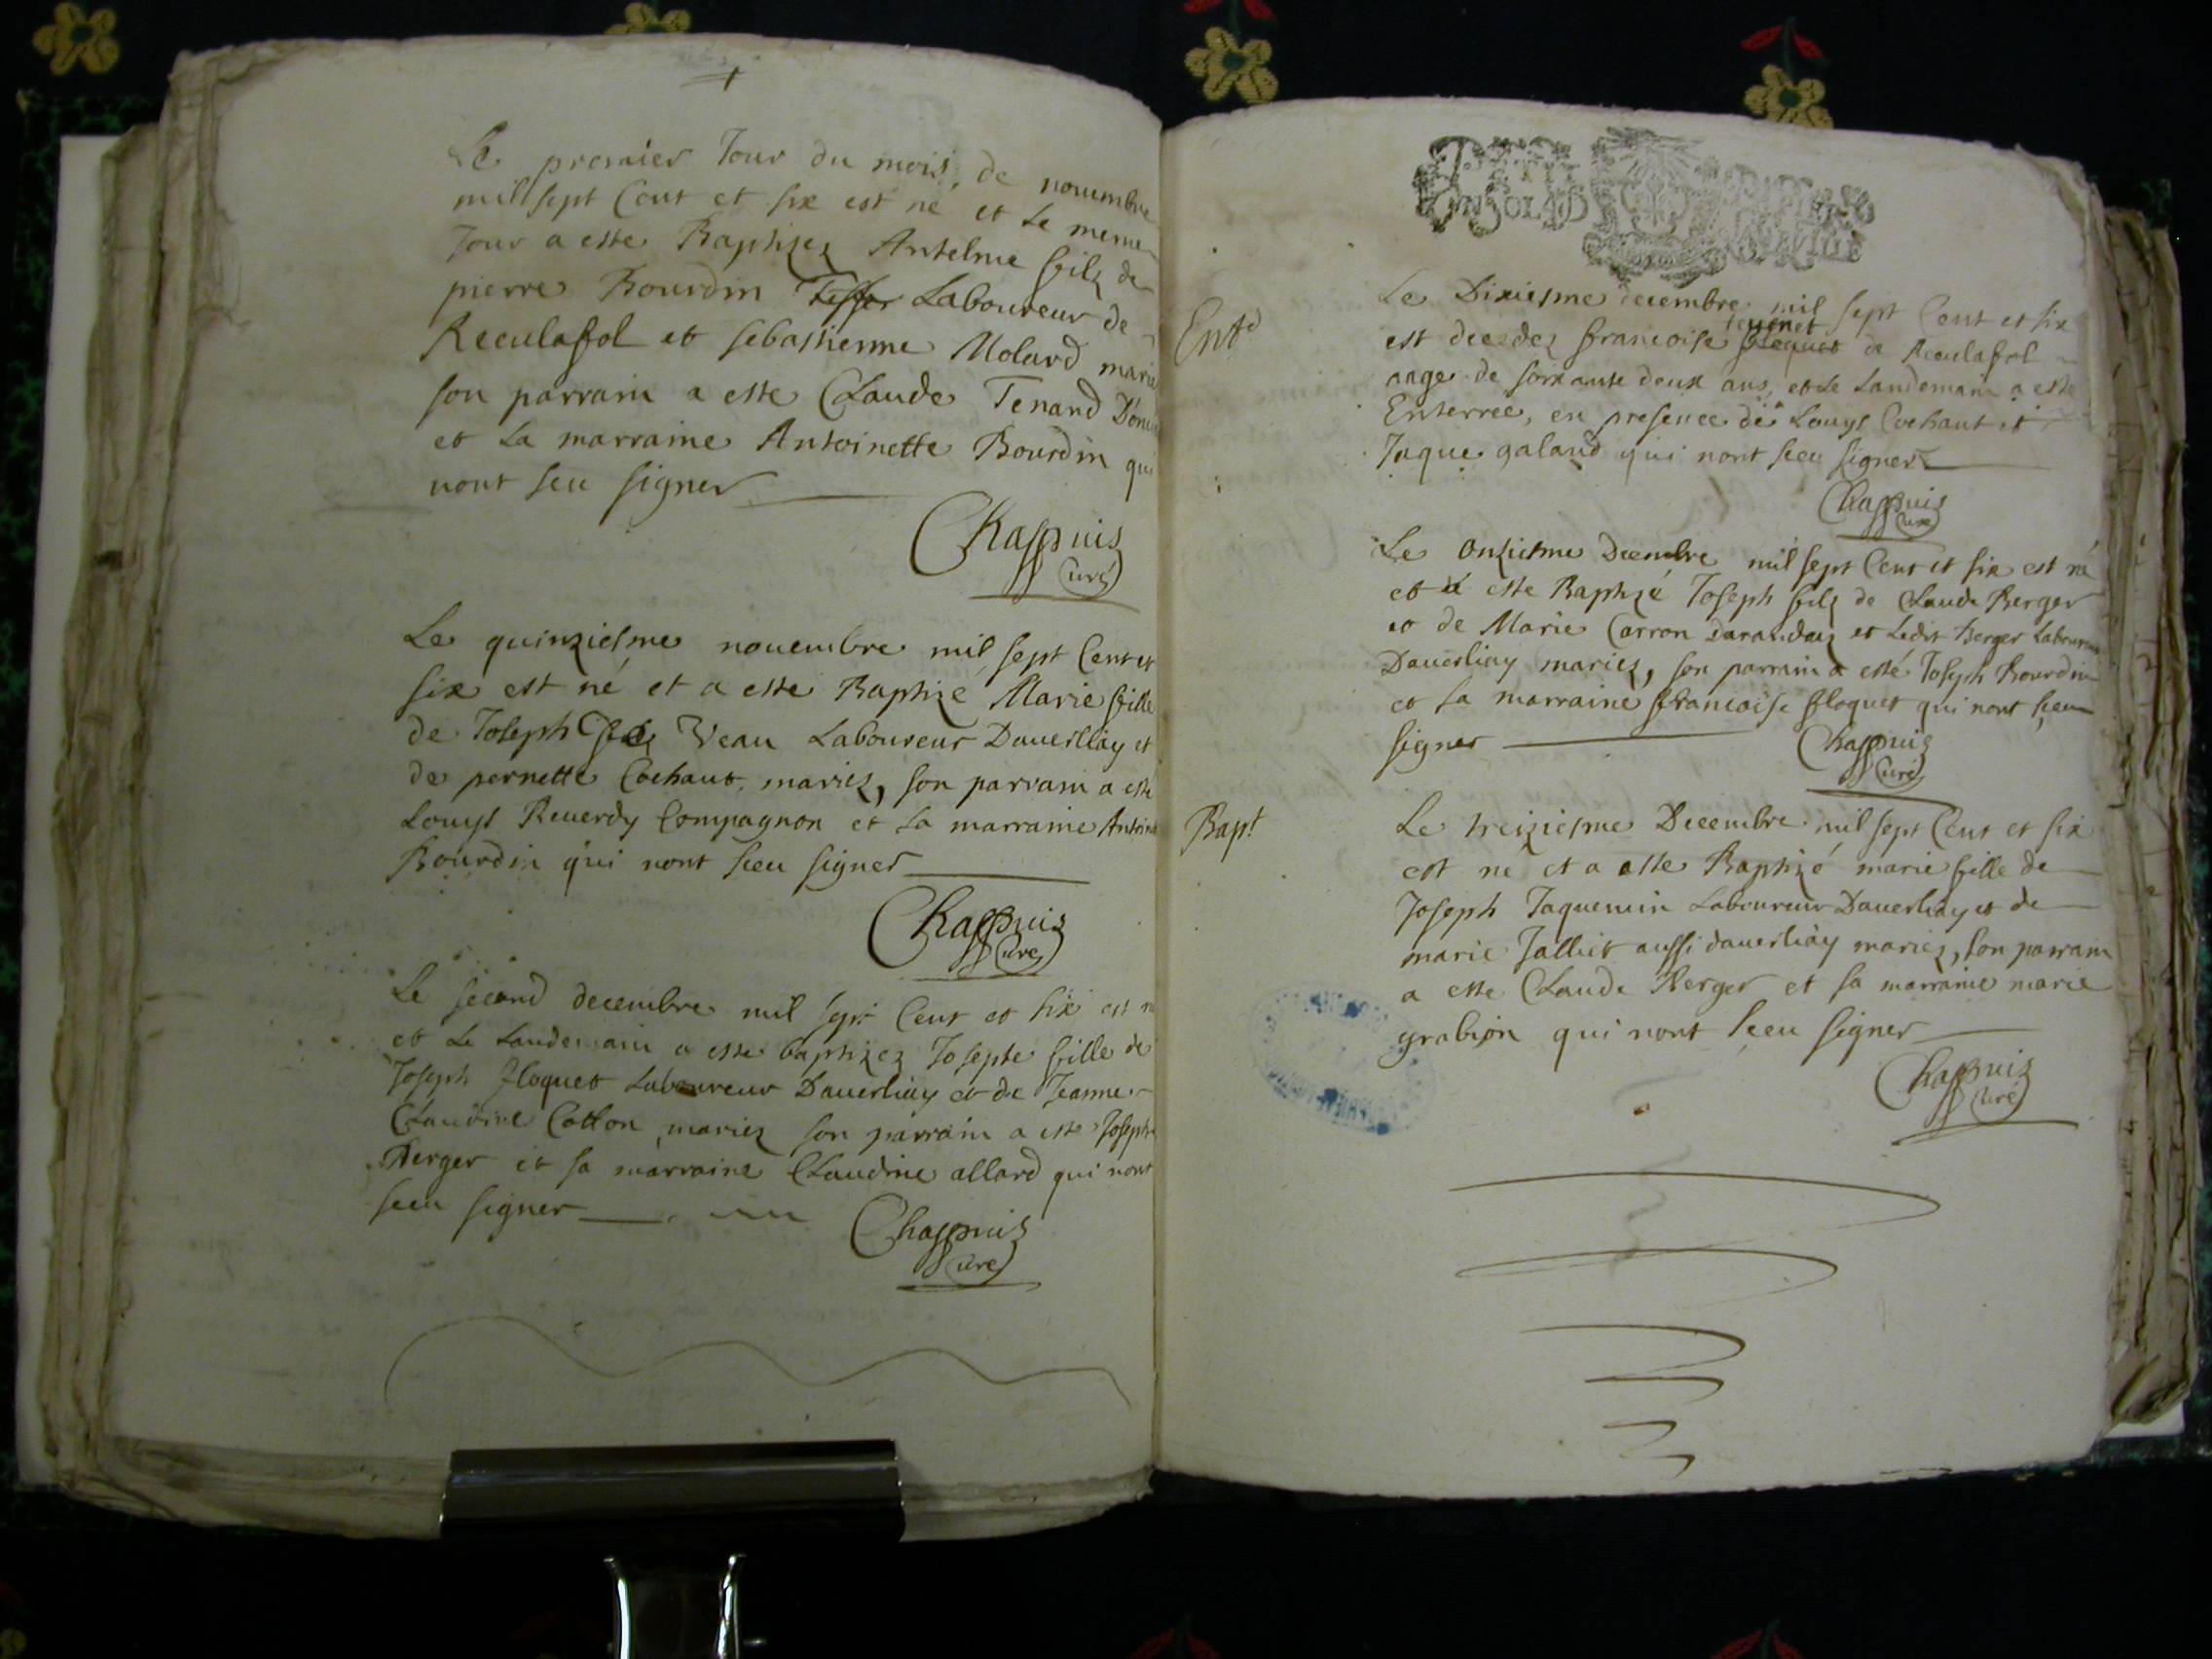 Le premier Jour du mois de nouembre
mil sept Cent et six est né et Le meme
Jour a este Baptizez Antelme filz de
pierre Bourdin Laboureur de
Reculafol et sebastienne Molard mariez
son parrain a este Claude Tenand
et La marraine Antoinette Bourdin qui
nont seu signer
Chappuis
Curé
Le quinziesme nouembre mil sept Cent et
six est né et a este Baptizé Marie fille
de Joseph Veau Laboureur Dauerliay et
de pernette Cochaut mariez, son parrain a esté
Louys Reuerdy Compagnon et sa marraine
Bourdin qui nont sceu signer
Chappuis
Curé
Le second decembre mil sept Cent et six est
et Le Landemain a este baptizez Josepte fille de
Joseph floquet Laboureur Dauerliay et de Jeanne
Claudine Cotton mariez son parrain a este Joseph
Berger et sa marraine Claudine allard qui nont
sceu signer
Chappuis
Curé
Le Dixiesme decembre mil sept Cent et six
est decedez francoise de Reculafol
aage de soixante deux ans, et Le Landemain a este
Enterree, en presence de Louys Cochaut et
Jaque galand qui nont sceu signer
Chappuis
Curé
Le Onziesme Decembre mil sept Cent et six est né
et a este Baptizé Joseph filz de Claude Berger
et de Marie Carron et Ledit Berger Laboureur
Dauerliay mariez, son parrain a esté Joseph Bourdin
et sa marraine francoise floquet qui nont sceu
signer
Chappuis
Curé
Bapt
Le treiziesme Decembre mil sept Cent et six
est né et a este Baptizé marie fille de
Joseph Jaquemin Laboureur Dauerliay et de
marie Jalliet aussi dauerliay mariez, son parrain
a este Claude Berger et sa marraine marie
grabion qui nont sceu signer
Chappuis
Curé